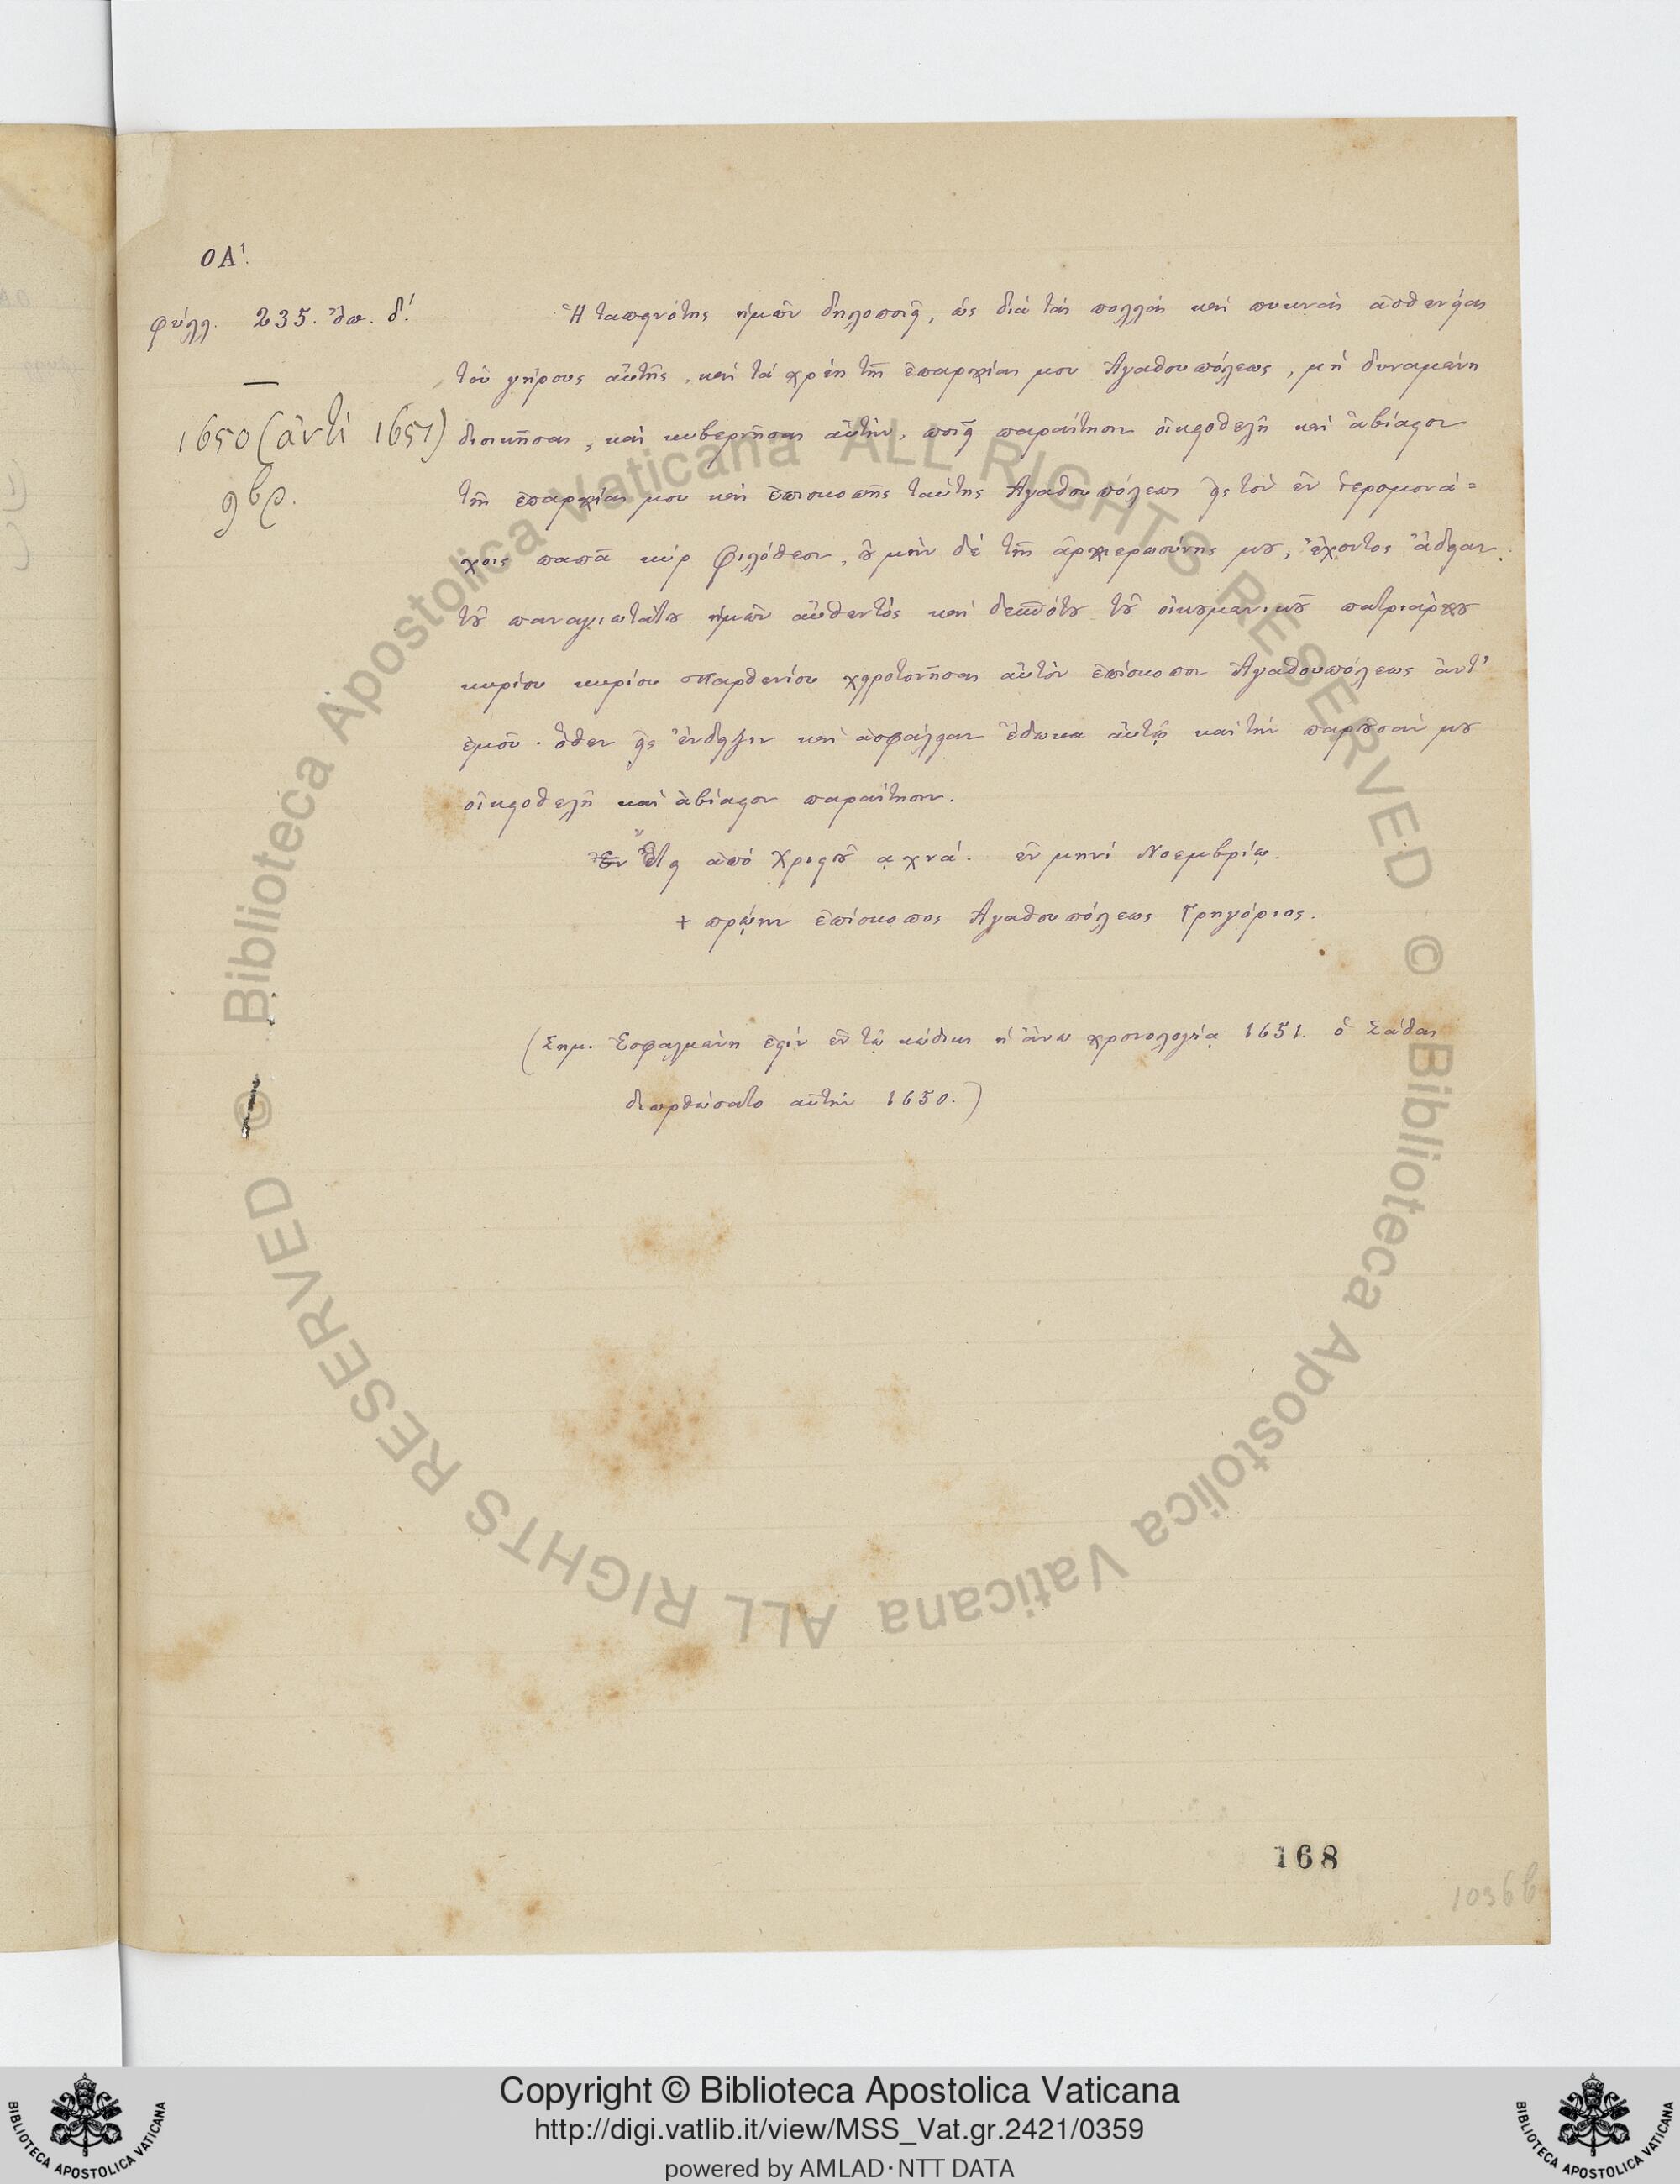 ΟΑ'.
φύλλ. 235. ὄπ. δ'.
1650 (ἀντὶ 1651)
9βρ.
Ἡ ταπεινότης ἡμῶν δηλοποιεῖ, ὡς διὰ τὰς πολλὰς καὶ πυκνὰς ἀσθενείας
τοῦ γήρους αὐτῆς, καὶ τὰ χρέη τῆς ἐπαρχίας μου Ἀγαθουπόλεως, μὴ δυναμένη
διοικῆσαι, καὶ κυβερνῆσαι αὐτὴν, ποιεῖ παραίτησιν οἰκειοθελῆ καὶ ἀβίαστον
τῆς ἐπαρχίας μου καὶ ἐπισκοπῆς ταύτης Ἀγαθουπόλεως εἰς τὸν ἐν ἱερομονά=
χοις παπᾶ κὺρ Φιλόθεον, οὐ μὴν δὲ τῆς ἀρχιερωσύνης μου, ἔχοντος ἄδειαν
τοῦ παναγιωτάτου ἡμῶν αὐθεντὸς καὶ δεσπότου τοῦ οἰκουμενικοῦ πατριάρχου
κυρίου κυρίου Παρθενίου χειροτονῆσαι αὐτὸν ἐπίσκοπον Ἀγαθουπόλεως ἀντ'
ἐμοῦ. ὅθεν εἰς ἔνδειξιν καὶ ἀσφάλειαν ἔδωκα αὐτῷ καὶ τὴν παροῦσάν μου
οἰκειοθελῆ καὶ ἀβίαστον παραίτησιν.
Ἔτει ἀπὸ Χριστοῦ αχνά. ἐν μηνὶ Νοεμβρίῳ.
+ πρώην ἐπίσκοπος Ἀγαθουπόλεως Γρηγόριος.
(Σημ. Ἐσφαλμένη ἐστὶν ἐν τῷ κώδικι ἡ ἄνω χρονολογία 1651. ὁ Σάθας
διωρθώσατο αὐτὴν 1650.)
168
1036b
Biblioteca Apostolica Vaticana ALL RIGHTS RESERVED ©
Biblioteca Apostolica Vaticana ALL RIGHTS RESERVED ©
Copyright © Biblioteca Apostolica Vaticana
http://digi.vatlib.it/view/MSS_Vat.gr.2421/0359
powered by AMLAD·NTT DATA
BIBLIOTECA APOSTOLICA VATICANA
BIBLIOTECA APOSTOLICA VATICANA